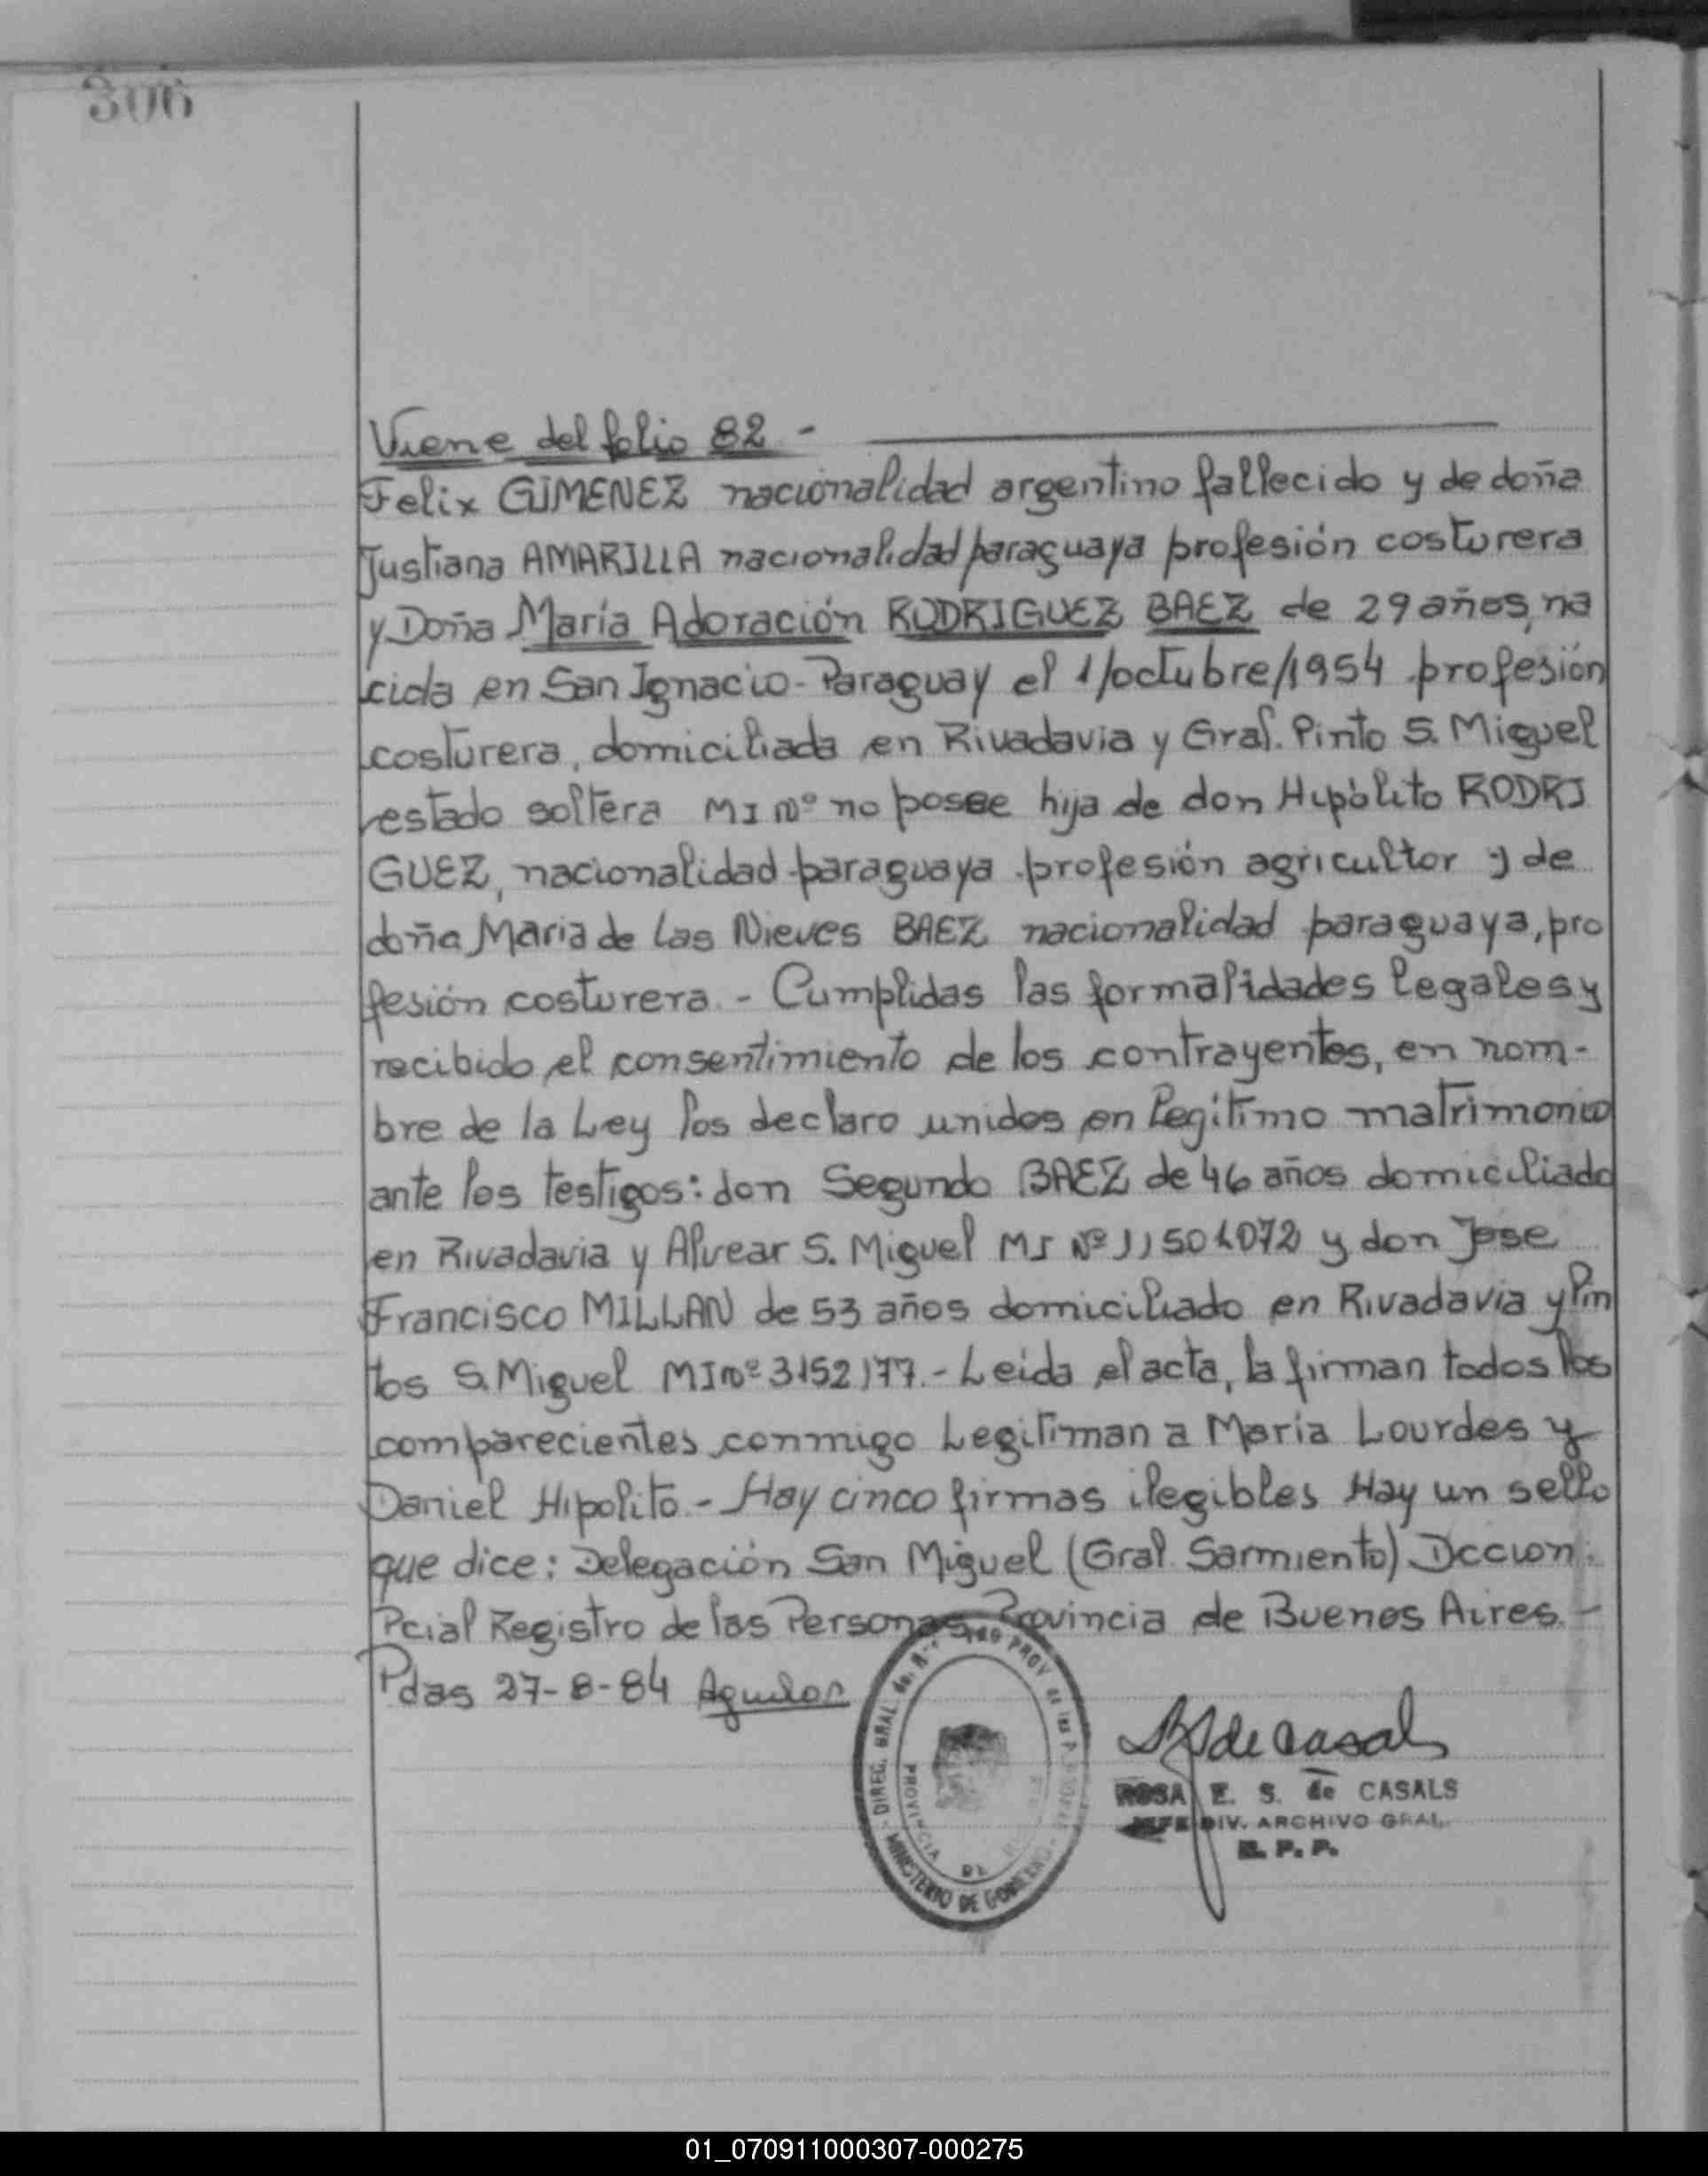 306
Viene del folio 82 -
Felix GIMENEZ nacionalidad argentino fallecido y de doña
Justiana AMARILLA nacionalidad paraguaya profesión costurera
y Doña María Adoración RODRIGUEZ BAEZ de 29 años, na
cida en San Ignacio - Paraguay el 1/octubre/1954 profesión
costurera, domiciliada en Rivadavia y Gral. Pinto S. Miguel
estado soltera MI Nº no posee hija de don Hipólito RODRI
GUEZ, nacionalidad paraguaya profesión agricultor y de
doña Maria de las Nieves BAEZ nacionalidad paraguaya, pro
fesión costurera. - Cumplidas las formalidades legales y
recibido el consentimiento de los contrayentes, en nom-
bre de la Ley los declaro unidos en legítimo matrimonio
ante los testigos: don Segundo BAEZ de 46 años domiciliado
en Rivadavia y Alvear S. Miguel MI Nº 11501072 y don Jose
Francisco MILLAN de 53 años domiciliado en Rivadavia y Pin
tos S. Miguel MI Nº 3152177.- Leida el acta, la firman todos los
comparecientes conmigo Legitiman a Maria Lourdes y
Daniel Hipolito.- Hay cinco firmas ilegibles Hay un sello
que dice: Delegación San Miguel (Gral. Sarmiento) Dccion.
Pcial Registro de las Personas Provincia de Buenos Aires. -
Pdas 27-8-84 Aguilar
DIREG. GRAL PROV. de las
PROVINCIA DE
MINISTERIO DE GOBIERNO
de Casals
ROSA E. S. de CASALS
JEFE DIV. ARCHIVO GRAL.
R. P. P.
01_070911000307-000275